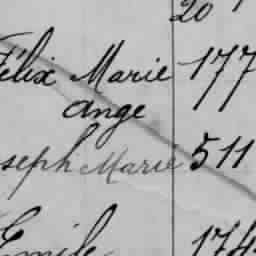 20
Félix Marie 177
ange
seph Marie 511
Emile 174